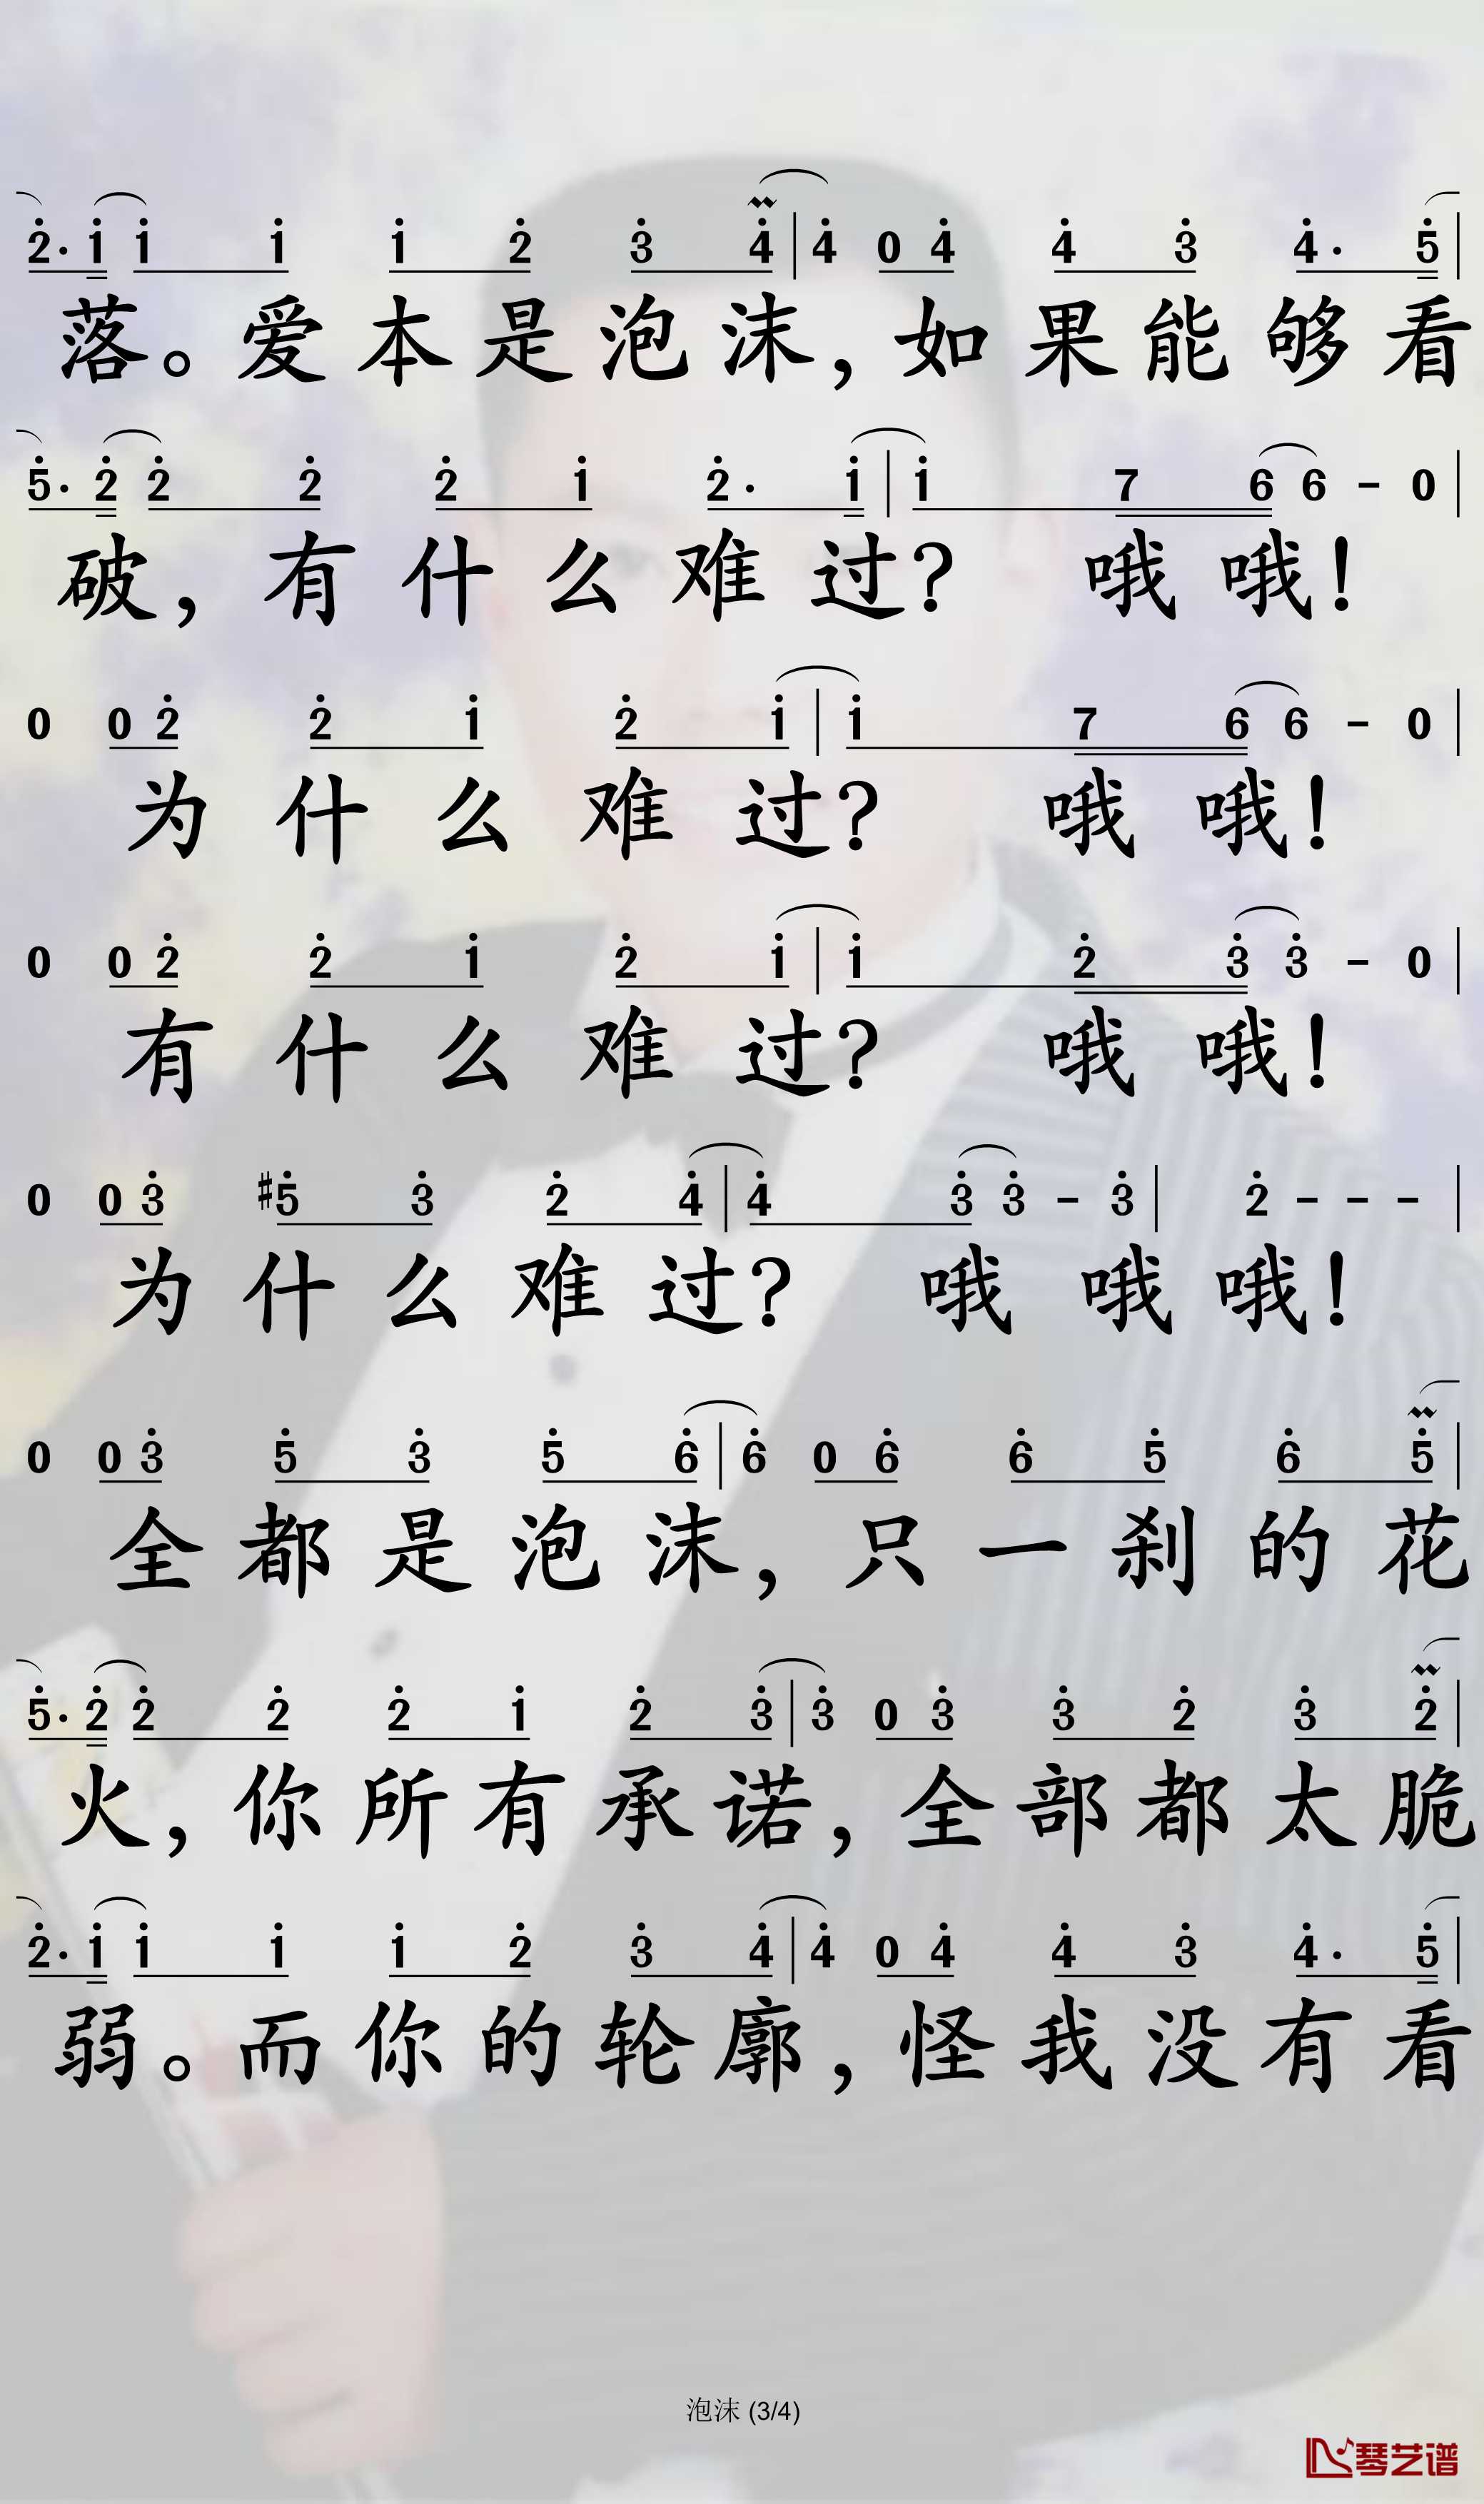 2· 1 1 1 1 2 3 4 | 4 0 4 4 3 4· 5 |
落。爱本是泡沫,如果能够看
5· 2 2 2 2 1 2· 1 | 1 7 6 6 - 0 |
破,有什么难过?哦哦!
0 0 2 2 1 2 1 | 1 7 6 6 - 0 |
为什么难过?哦哦!
0 0 2 2 1 2 1 | 1 2 3 3 - 0 |
有什么难过?哦哦!
0 0 3 #5 3 2 4 | 4 3 3 - 3 | 2 - - - |
为什么难过?哦哦哦!
0 0 3 5 3 5 6 | 6 0 6 6 5 6 5 |
全都是泡沫,只一刹的花
5· 2 2 2 2 1 2 3 | 3 0 3 3 2 3 2 |
火,你所有承诺,全部都太脆
2· 1 1 1 1 2 3 4 | 4 0 4 4 3 4· 5 |
弱。而你的轮廓,怪我没有看
泡沫 (3/4)
琴艺谱